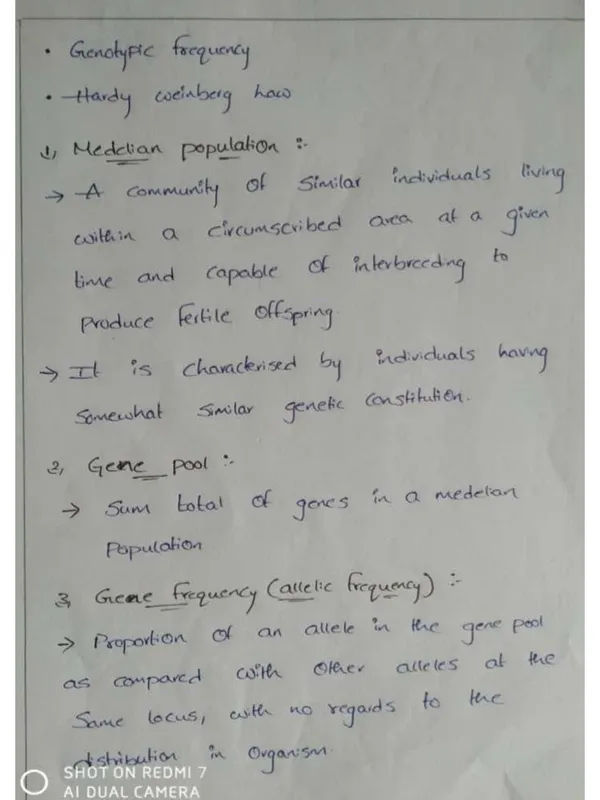 • Genotypic frequency
• Hardy weinberg Law
1, Meddian population :-
→ A community of similar individuals living
within a circumscribed area at a given
time and capable of interbreeding to
produce fertile offspring
→ It is characterised by individuals having
somewhat similar genetic constitution.
2, Gene pool :-
→ Sum total of genes in a medelian
population
3, Gene frequency (allelic frequency) :-
→ Proportion of an allele in the gene pool
as compared with other alleles at the
same locus, with no regards to the
distribution in organism.
SHOT ON REDMI 7
AI DUAL CAMERA